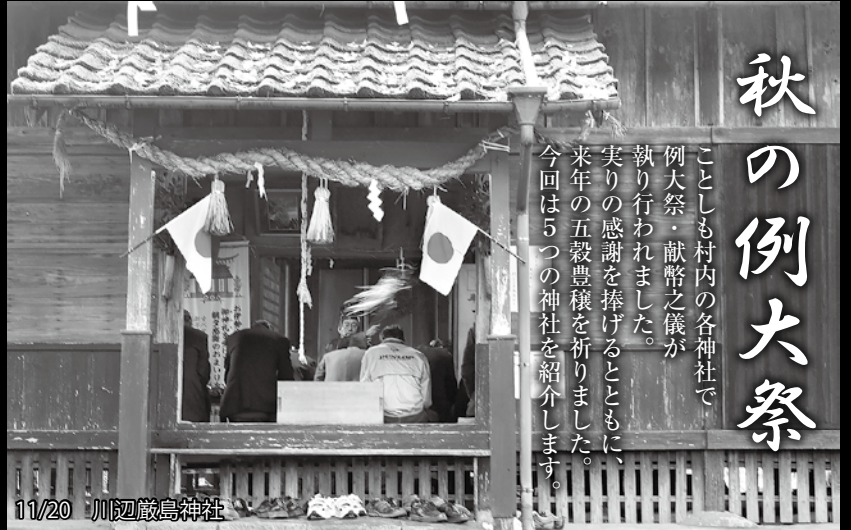 秋の例大祭
ことしも村内の各神社で
例大祭・献幣之儀が
執り行われました。
実りの感謝を捧げるとともに、
来年の五穀豊穣を祈りました。
今回は５つの神社を紹介します。
11/20　川辺厳島神社